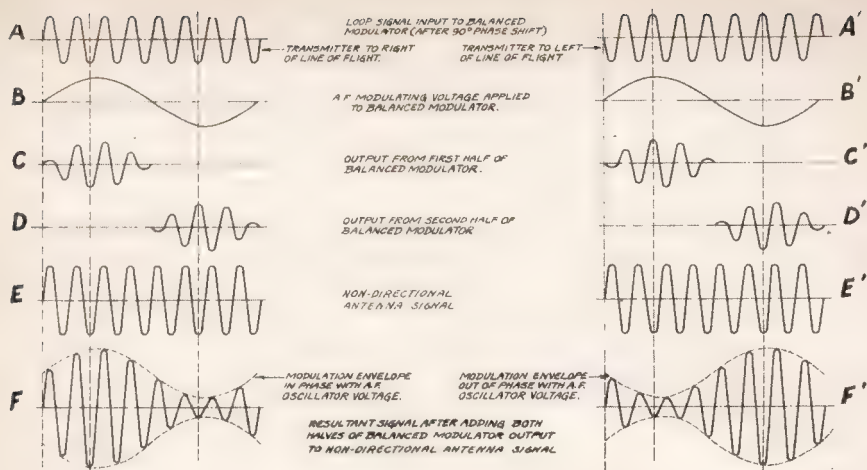 A
LOOP SIGNAL INPUT TO BALANCED
MODULATOR (AFTER 90° PHASE SHIFT)
A'
TRANSMITTER TO RIGHT
OF LINE OF FLIGHT.
TRANSMITTER TO LEFT
OF LINE OF FLIGHT
B
A F MODULATING VOLTAGE APPLIED
TO BALANCED MODULATOR.
B'
C
OUTPUT FROM FIRST HALF OF
BALANCED MODULATOR.
C'
D
OUTPUT FROM SECOND HALF OF
BALANCED MODULATOR
D'
E
NON-DIRECTIONAL
ANTENNA SIGNAL
E'
F
MODULATION ENVELOPE
IN PHASE WITH A.F.
OSCILLATOR VOLTAGE.
MODULATION ENVELOPE
OUT OF PHASE WITH A.F.
OSCILLATOR VOLTAGE.
F'
RESULTANT SIGNAL AFTER ADDING BOTH
HALVES OF BALANCED MODULATOR OUTPUT
TO NON-DIRECTIONAL ANTENNA SIGNAL